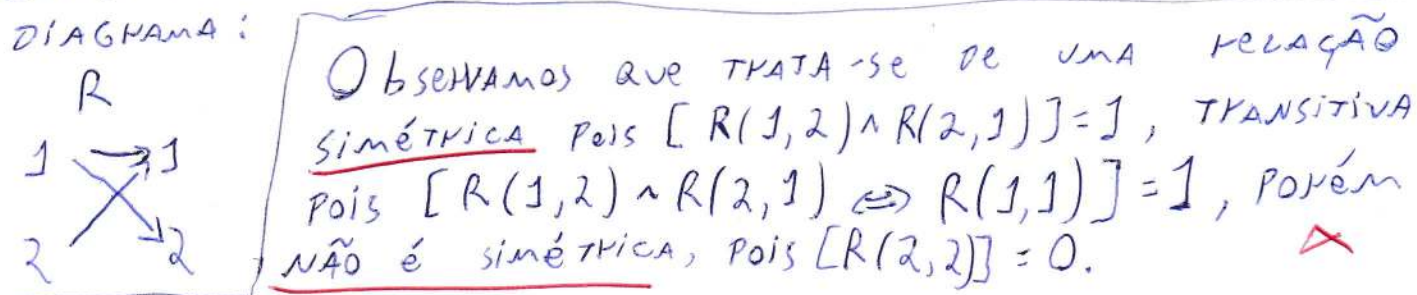 DIAGRAMA:
R
1 → 1
2 2
Observamos que trata-se de uma relação
simétrica pois [R(1,2) ∧ R(2,1)]=1, transitiva
pois [R(1,2) ∧ R(2,1) ⇔ R(1,1)]=1, porém
não é simétrica, pois [R(2,2)] = 0.